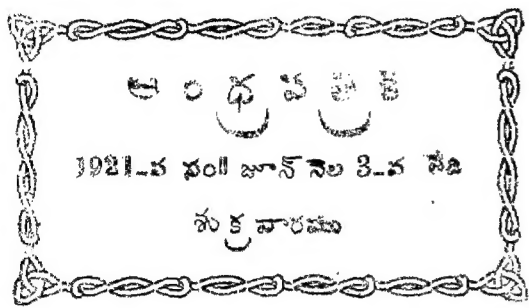 ఆంధ్రపత్రిక
1921-వ సం॥ జూన్ నెల 3-వ తేది
శుక్రవారము